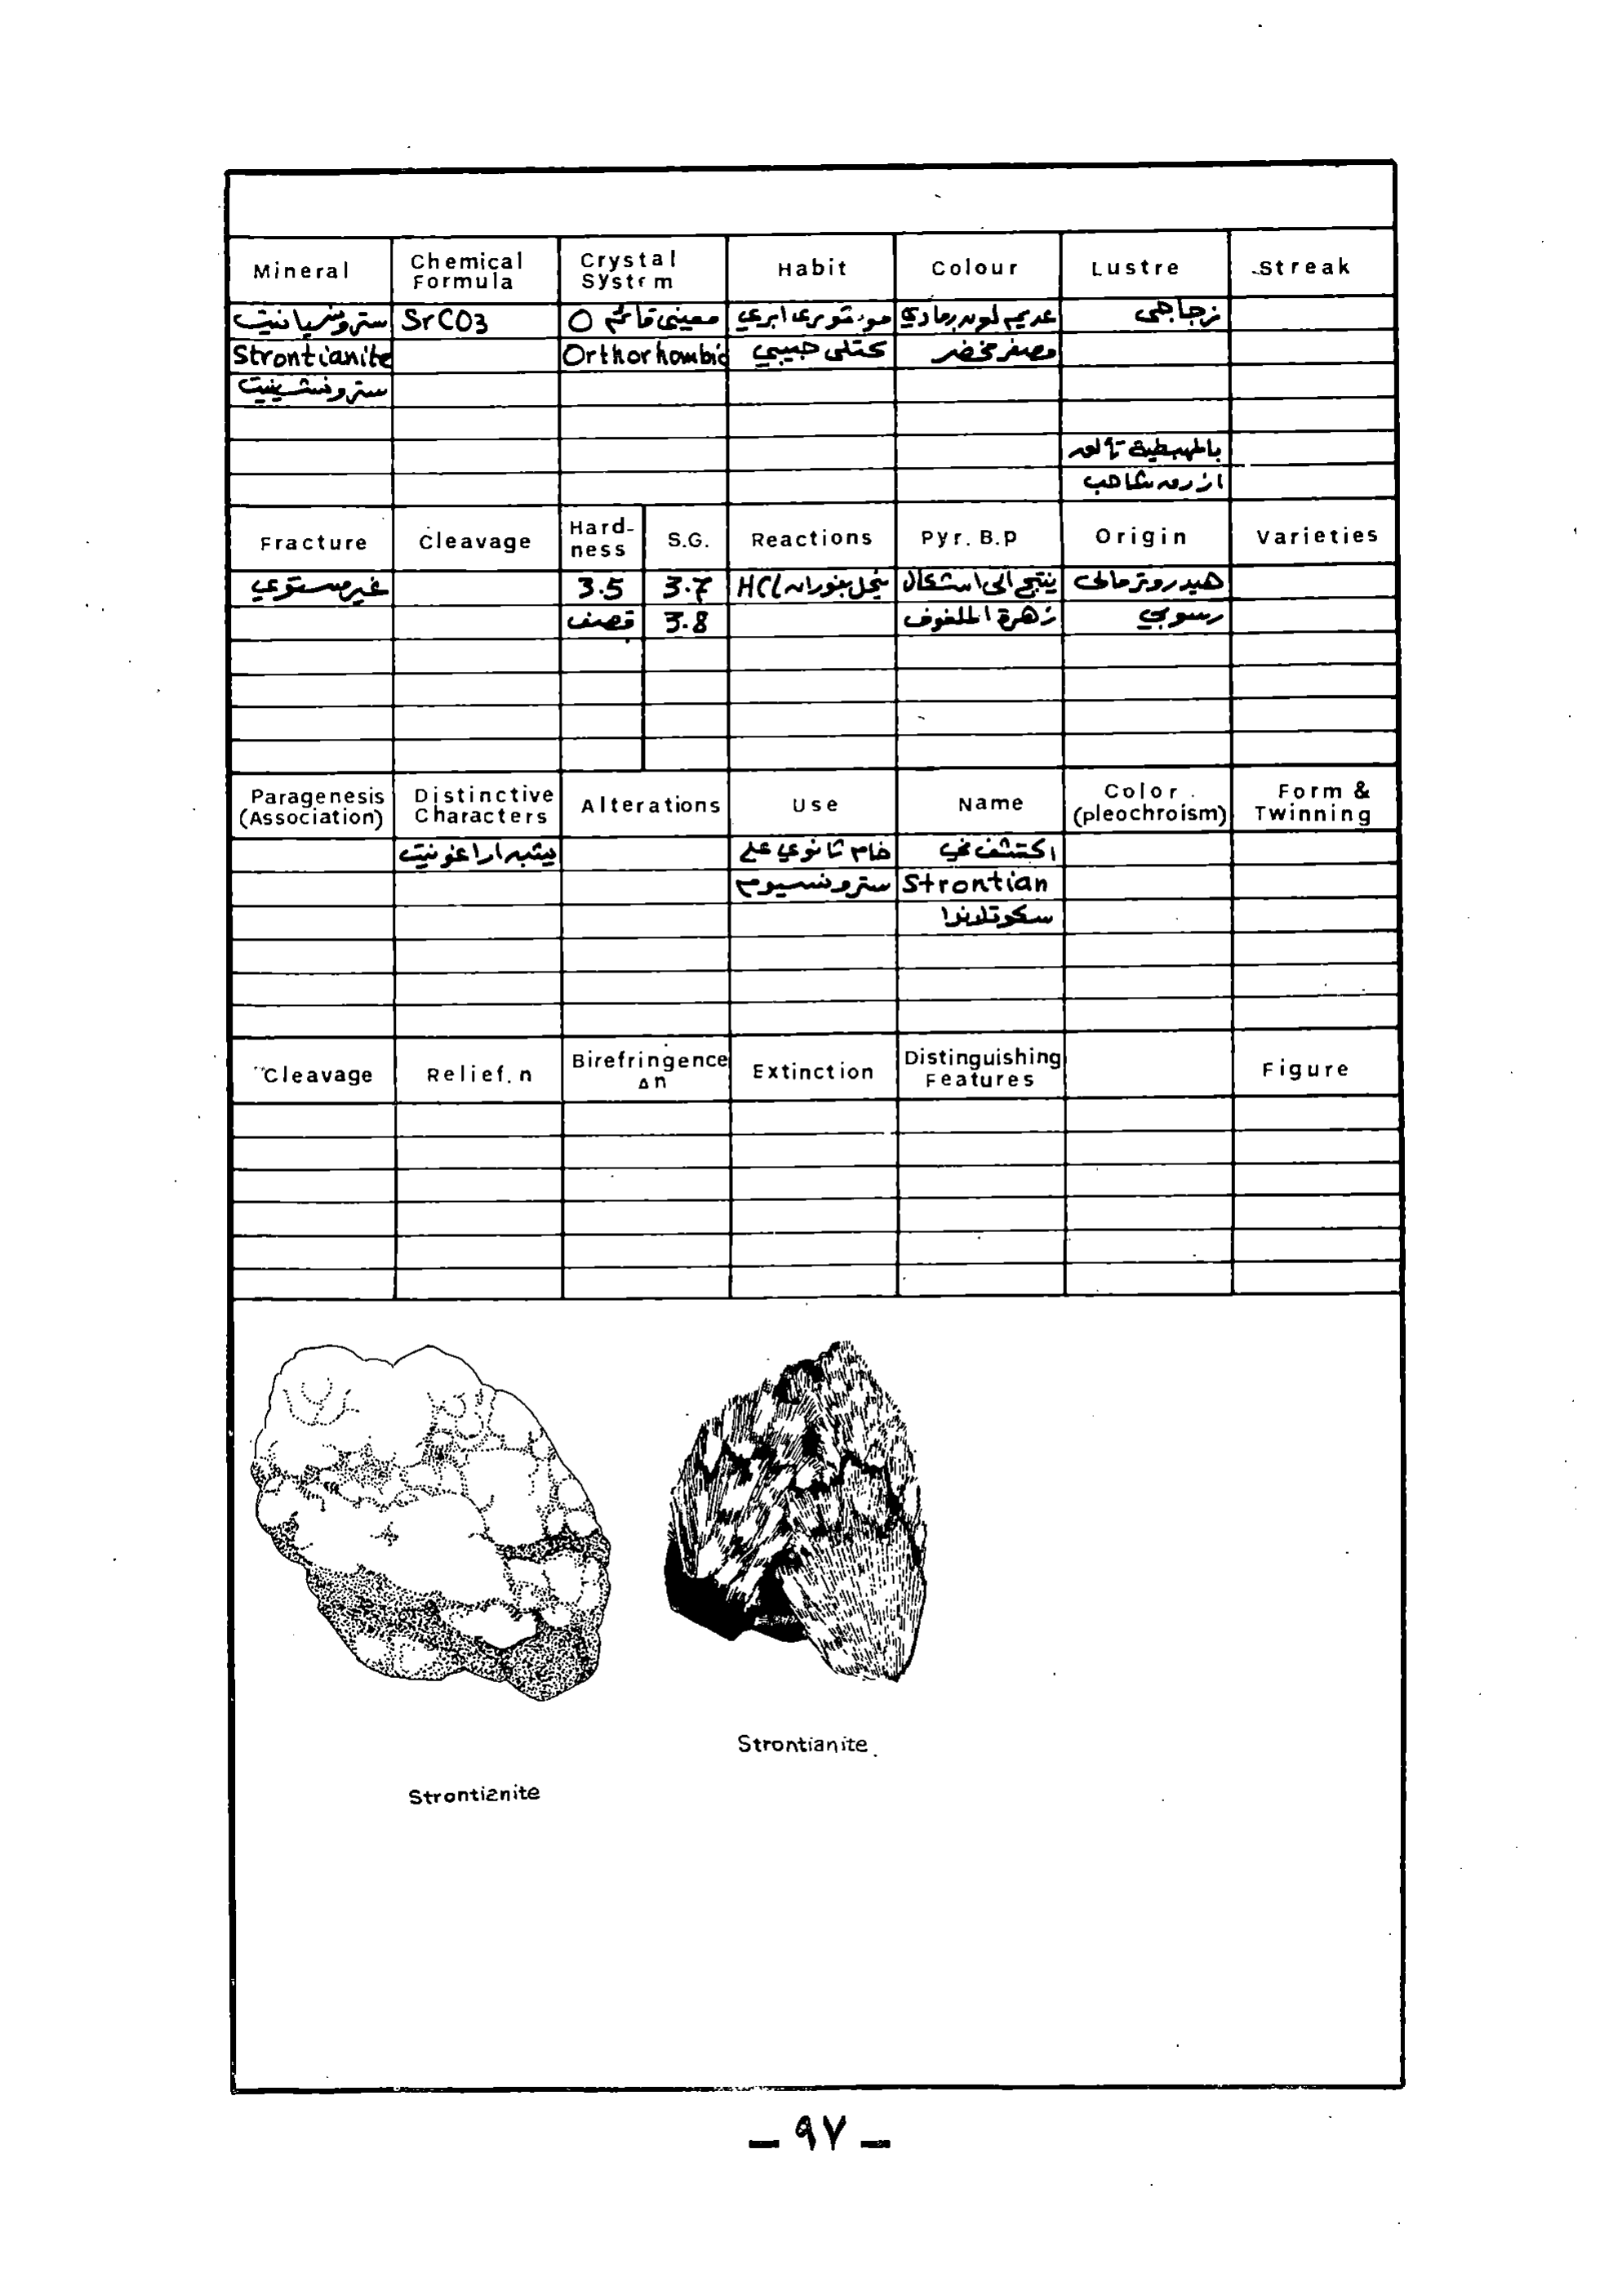 Mineral Chemical Formula Crystal System Habit Colour Lustre Streak
سترونسيانيت SrCO3 معيني قائم O موشوري ابري عديم لون رمادي زجاجي
Strontianite Orthorhombic كتلي حبيبي مصفر مخضر
سترونشينيت
بالمهبطية تألق
ازرق شاحب
Fracture Cleavage Hard-ness S.G. Reactions Pyr. B.p Origin Varieties
غير مستوي 3.5 3.7 ينحل بفوران HCl ينتج الى اشكال هيدروترمالي
قصف 3.8 زهرة الملفوف رسوبي
Paragenesis (Association) Distinctive Characters Alterations Use Name Color (pleochroism) Form & Twinning
يشبه اراغونيت خام ثانوي على اكتشف في
سترونسيوم Strontian
سكوتلاندا
Cleavage Relief. n Birefringence Δn Extinction Distinguishing Features Figure
Strontianite
Strontianite
_ ٩٧ _